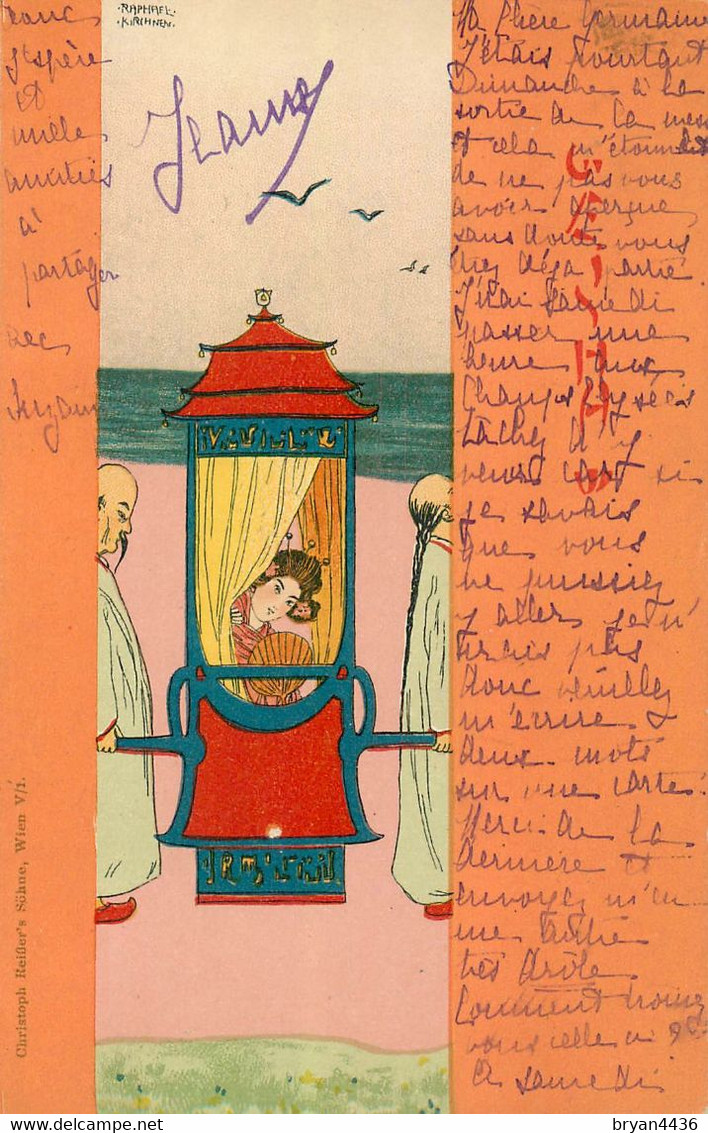 RAPHAEL
KIRCHNER.
Ma Chère Germaine
J'étais pourtant
Dimanche à la
sortie de la messe
et cela m'étonnait
de ne pas vous
avoir aperçue
sans doute vous
étiez déjà partie
J'irai samedi
passer une
heure aux
Champs Elysées
tâchez d'y
venir car si
je savais
que vous
ne puissiez
y aller je n'
irais pas
donc veuillez
m'écrire
deux mots
sur une carte.
Merci de la
dernière et
envoyez m'en
une autre
très drôle
Comment trouvez
vous celle ci
A samedi
donc
j'espère
et
mille
amitiés
à
partager
avec
Suzanne
GEISHA
Christoph Reißer's Söhne, Wien V/1.
bryan4436